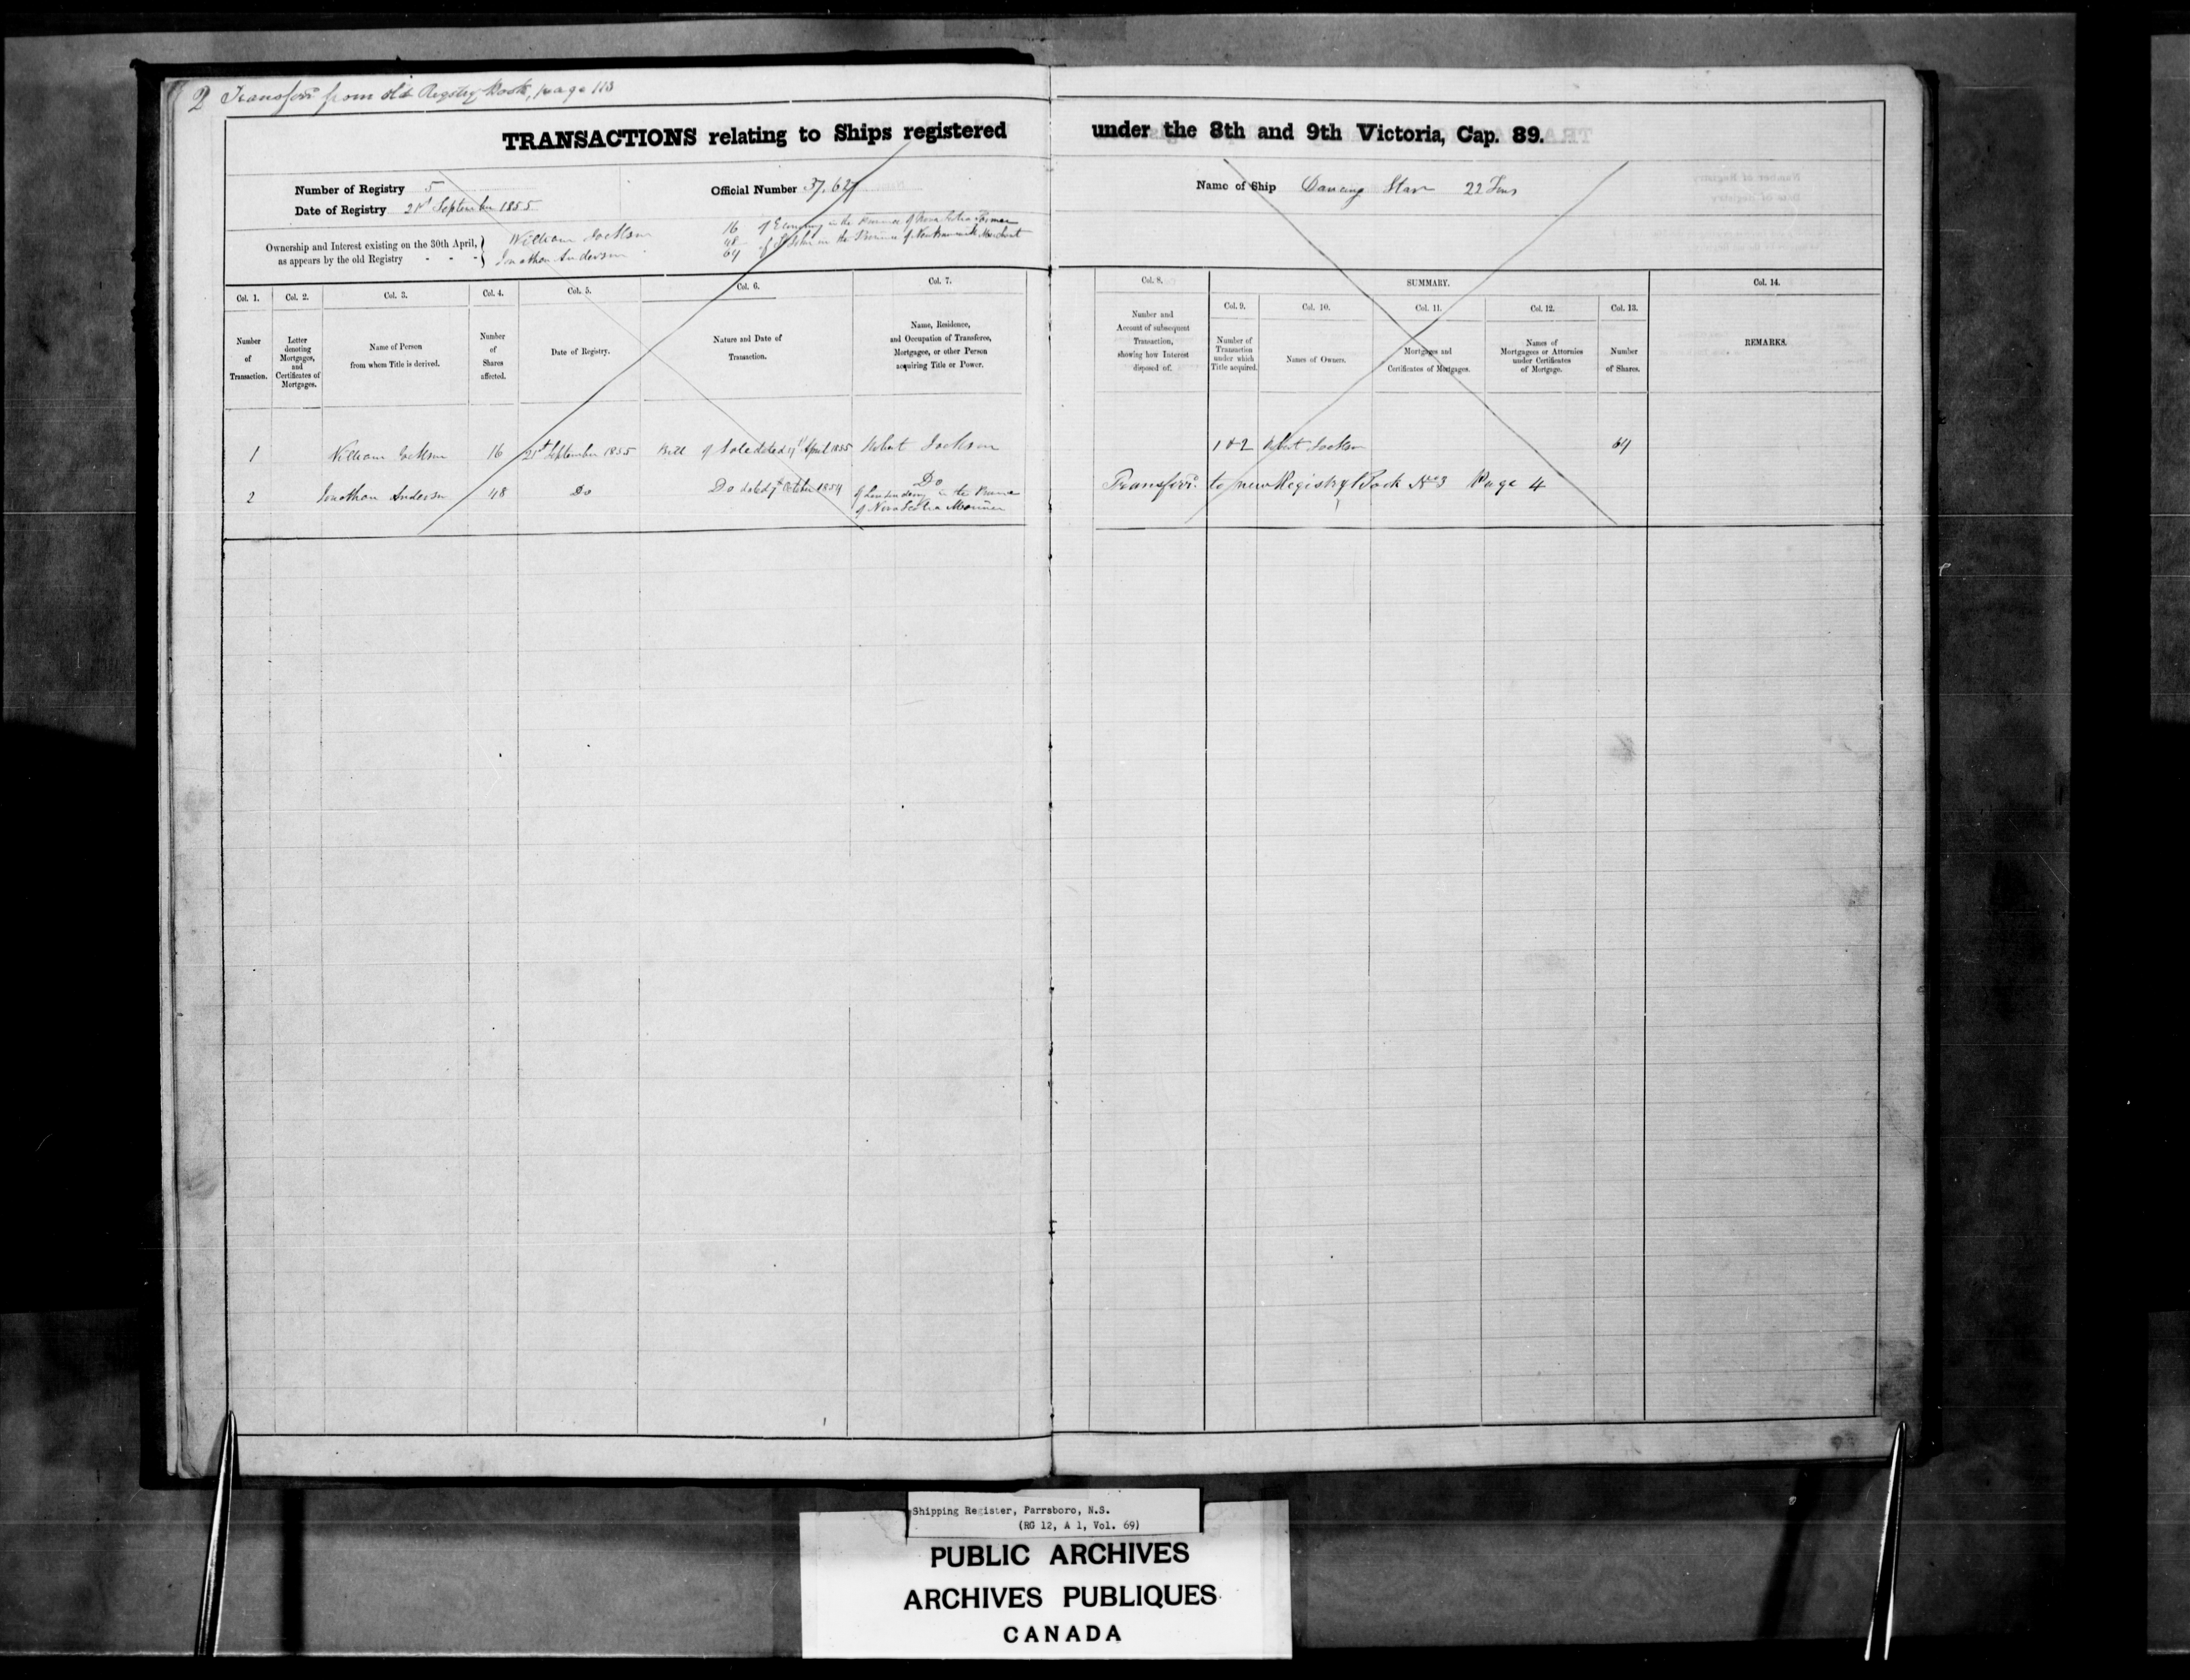 2 Transferr'd from old Registry Book, page 113
TRANSACTIONS relating to Ships registered under the 8th and 9th Victoria, Cap. 89.
Number of Registry 5
Official Number 37,627
Name of Ship Dancing Star 22 Tons
Date of Registry 21st September 1855
Ownership and Interest existing on the 30th April, as appears by the old Registry - - -
William Jackson 16 of Economy in the Province of Nova Scotia Farmer
Jonathan Anderson 48 of St John in the Province of New Brunswick Merchant
64
Col. 1. Col. 2. Col. 3. Col. 4. Col. 5. Col. 6. Col. 7. Col. 8. SUMMARY. Col. 14.
Col. 9. Col. 10. Col. 11. Col. 12. Col. 13.
Number of Transaction.
Letter denoting Mortgages, and Certificates of Mortgages.
Name of Person from whom Title is derived.
Number of Shares affected.
Date of Registry.
Nature and Date of Transaction.
Name, Residence, and Occupation of Transferee, Mortgagee, or other Person acquiring Title or Power.
Number and Account of subsequent Transaction, showing how Interest disposed of.
Number of Transaction under which Title acquired.
Names of Owners.
Mortgages and Certificates of Mortgages.
Names of Mortgagees or Attornies under Certificates of Mortgage.
Number of Shares.
REMARKS.
1 William Jackson 16 21st September 1855 Bill of Sale dated April 1855 Robert Jackson 1 & 2 Robert Jackson 64
2 Jonathan Anderson 48 Do Do dated October 1854 Do
of Londonderry in the Province
of Nova Scotia Mariner
Transferr'd to new Registry Book No 3 Page 4
Shipping Register, Parrsboro, N.S.
(RG 12, A 1, Vol. 69)
PUBLIC ARCHIVES
ARCHIVES PUBLIQUES
CANADA